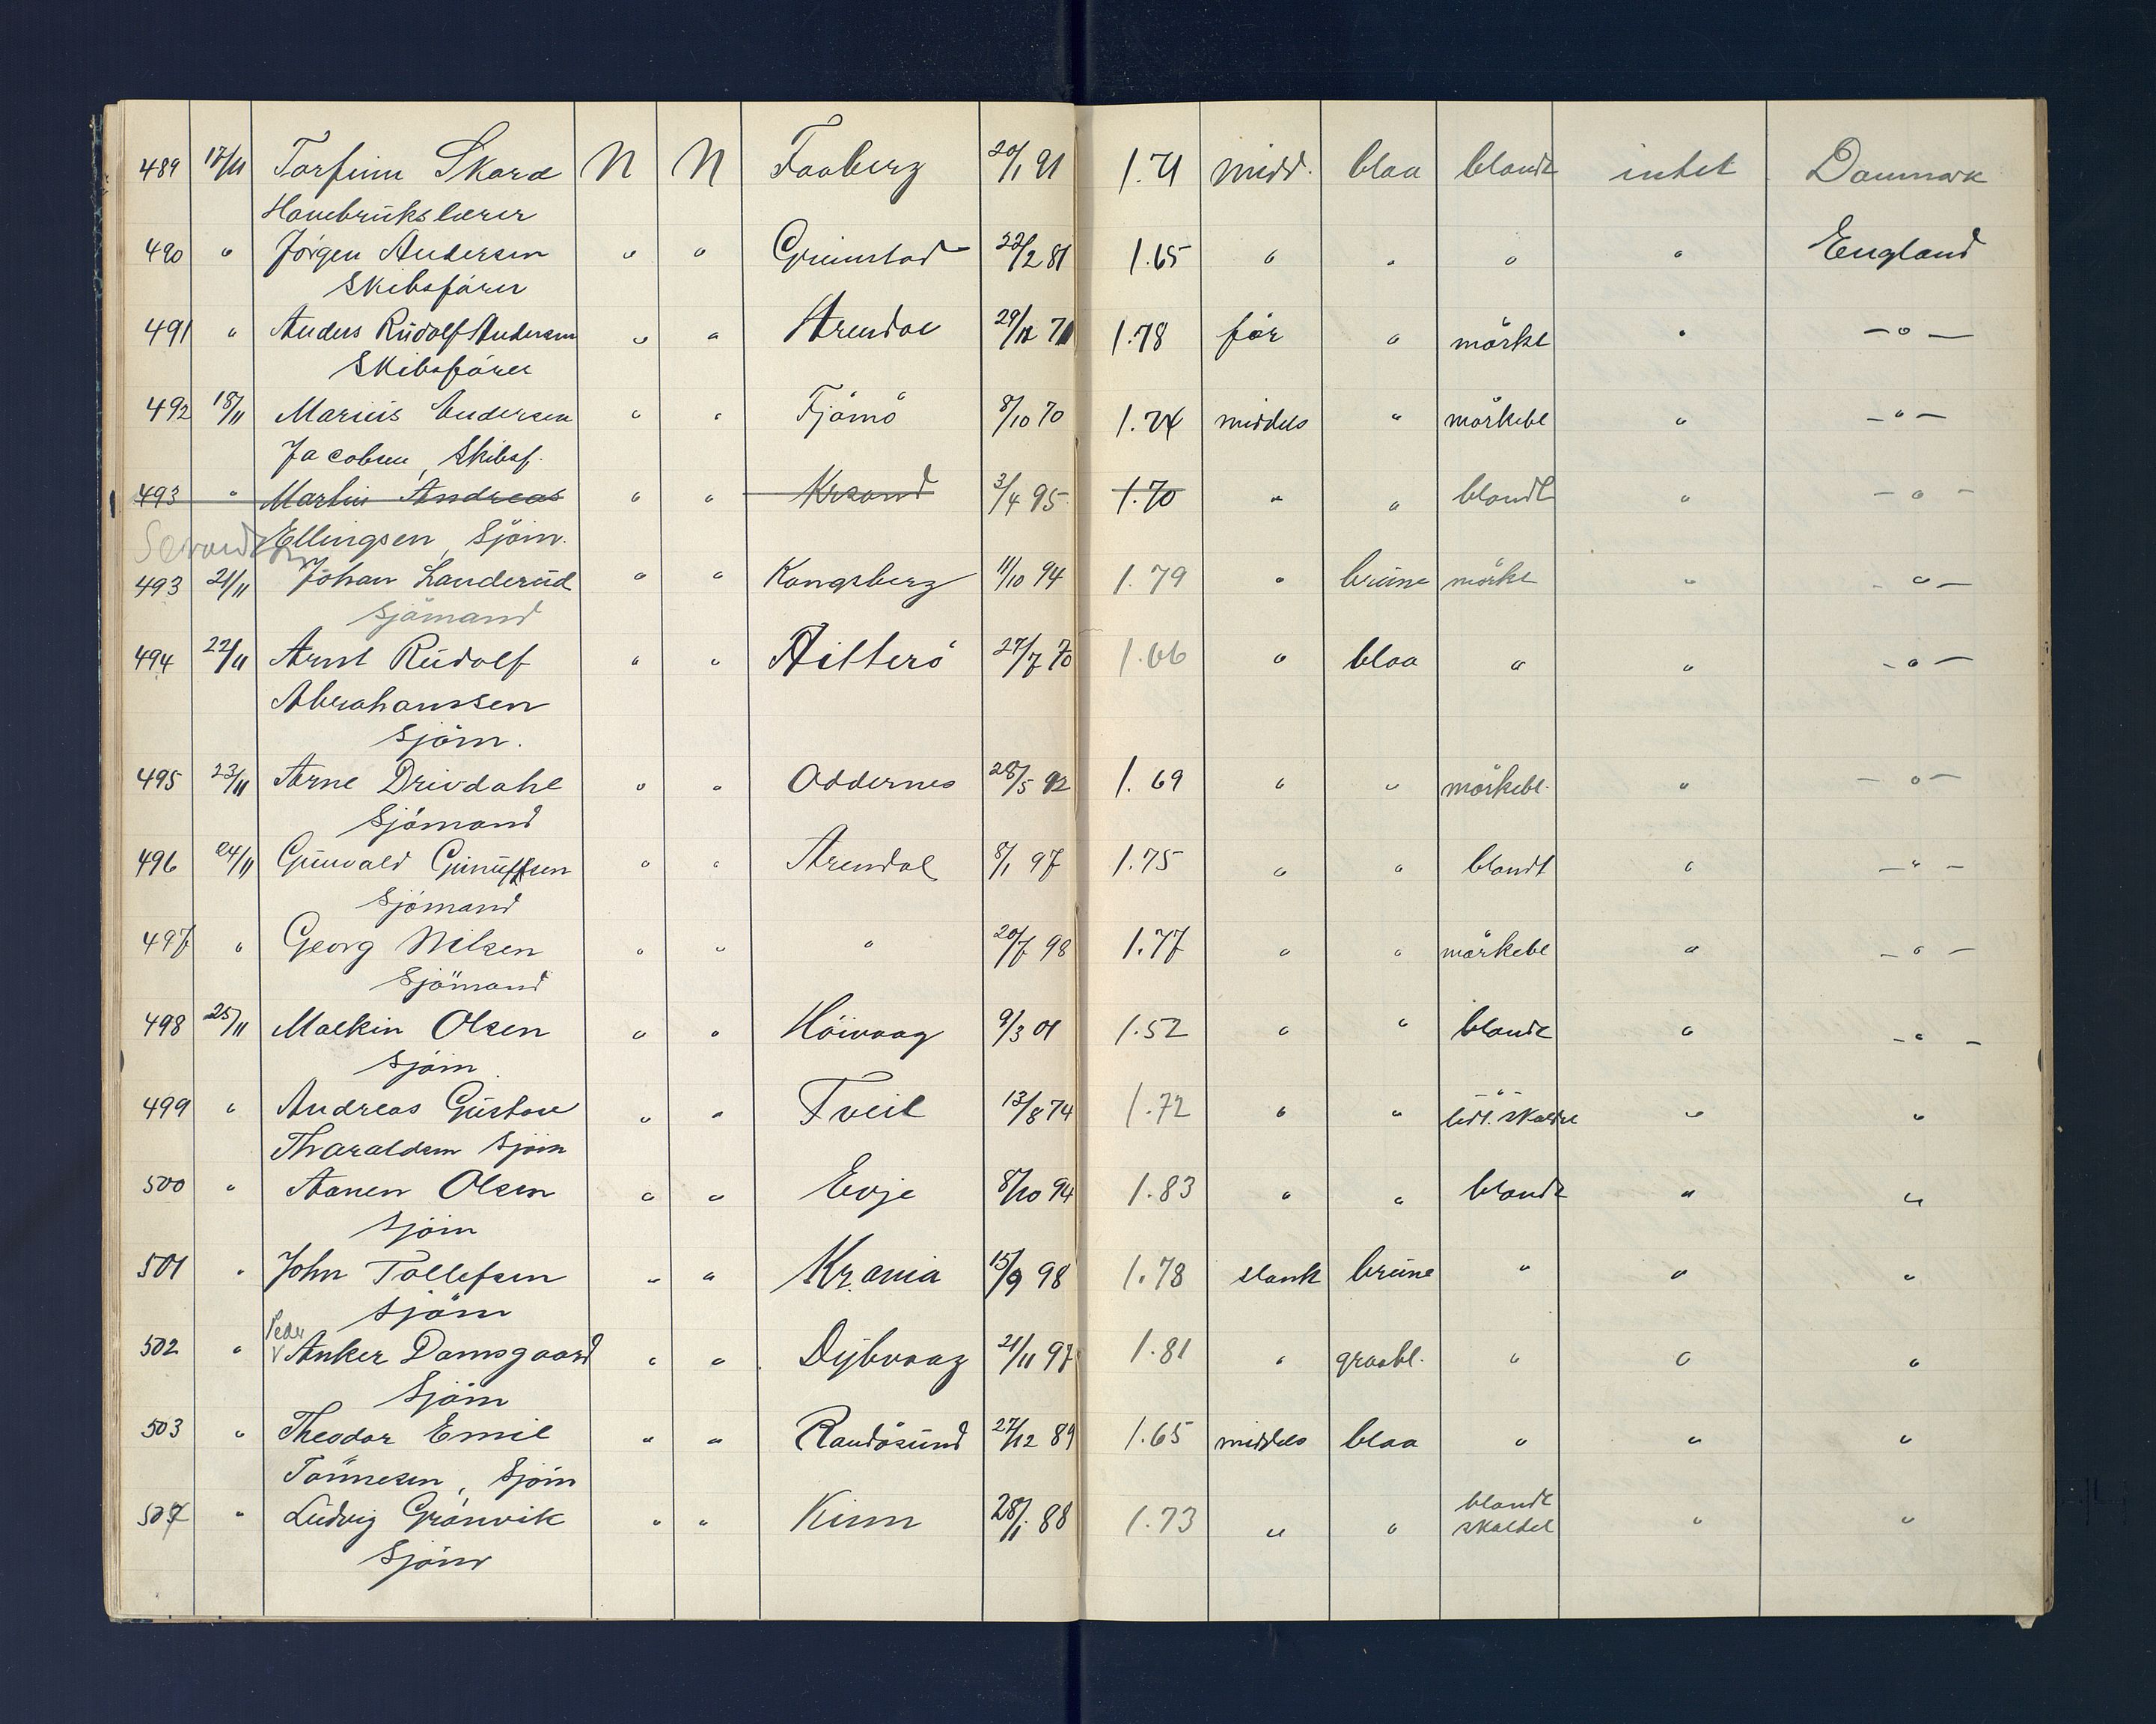 489 17/11 Torfinn Skard N N Faaberg 20/1 91 1.71 midd. blaa blondt intet Danmark
Havebrukslærer
490 " Jörgen Andersen " " Grimstad 22/2 81 1.65 " " " " England
Skibsförer
491 " Anders Rudolf Andersen " " Arendal 29/12 71 1.78 för " mörkt " — " —
Skibsförer
492 18/11 Marius Andersen " " Tjömö 8/10 70 1.74 middels " mörkebl " — " —
Jacobsen, Skibsf.
493 " Martin Andreas " " Krsand 3/4 95 1.70 " " blondt " — " —
Ellingsen, Sjöm.
493 21/11 Johan Landerud " " Kongsberg 11/10 94 1.79 " brune mörkt " — " —
Sjömand
494 22/11 Arnt Rudolf " " Hitterö 27/7 70 1.66 " blaa " " — " —
Abrahamsen
Sjöm.
495 23/11 Arne Drivdahl " " Oddernes 28/5 92 1.69 " " mörkebl. " — " —
Sjömand
496 24/11 Gunvald Gunuffsen " " Arendal 8/1 97 1.75 " " blondt " — " —
Sjömand
497 " Georg Nilsen " " " 20/7 98 1.77 " " mörkebl " — " —
Sjömand
498 25/11 Malkin Olsen " " Höivaag 9/3 01 1.52 " " blondt " — " —
Sjöm.
499 " Andreas Gustav " " Tveit 13/8 74 1.72 " " — " — lidt. skaldet " "
Tharaldsen Sjöm
500 " Aanen Olsen " " Evje 8/10 94 1.83 " " blondt " "
Sjöm
501 " John Tollefsen " " Kr.ania 15/9 98 1.78 slank brune " " "
Sjöm
Peder
502 " v Anker Damsgaard " " Dybvaag 21/11 97 1.81 " graabl. " " "
Sjöm
503 " Theodor Emil " " Randösund 27/12 89 1.65 middels blaa " " "
Tönnesen, Sjöm
504 " Ludvig Grönvik " " Kinn 28/1 88 1.73 " " blondt skaldet " "
Sjöm